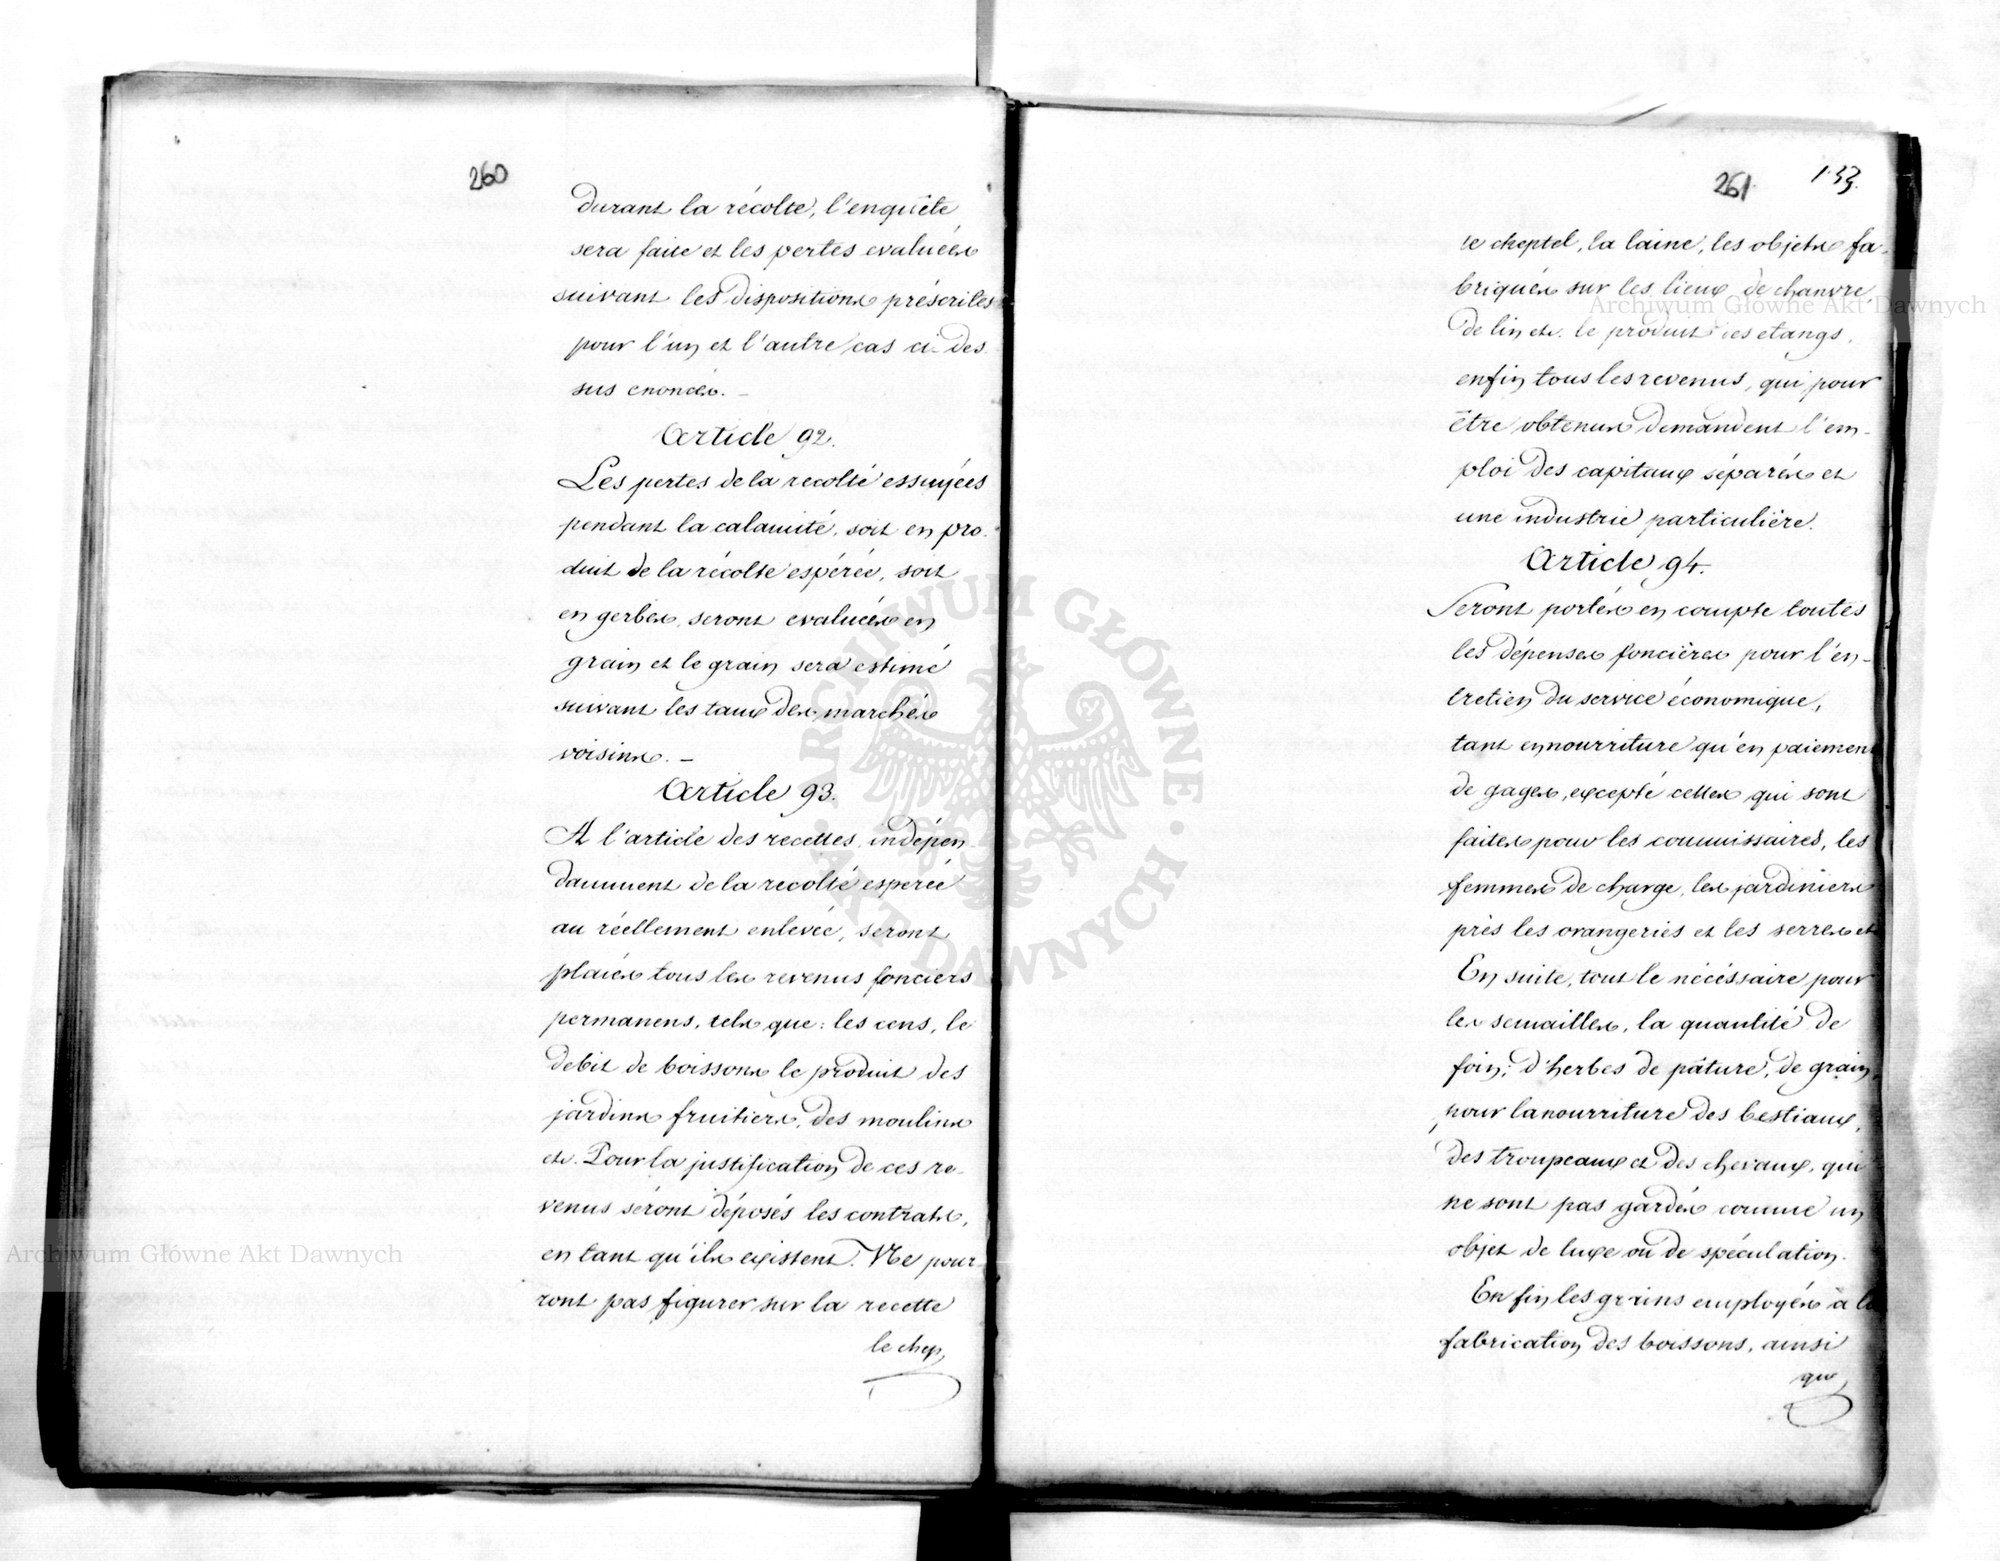 260
durant la récolte, l'enquête
sera faite et les pertes evaluées
suivant les dispositions préscrites
pour l'un et l'autre cas ci-des
sus enoncés. –
Article 92.
Les pertes de la recolté essuyées
pendant la calamité, soit en pro-
duit de la récolte espérée, soit
en gerbes, seront evaluées en
grain et le grain sera estimé
suivant les taux des marchés
voisins. –
Article 93.
A l'article des recettes, indépen
damment de la recolté esperée
au réellement enlevée, seront
placés tous les revenus fonciers
permanens, tels que: les cens, le
debit de boissons le produit des
jardins fruitiers, des moulins
etc. Pour la justification de ces re-
venus séront déposés les contrats,
en tant qu'ils existent. Ne pour-
ront pas figurer sur la recette
le chep
261
133.
le cheptel, la laine, les objets fa-
briqués sur les lieux de chanvre,
de lin etc. le produit des etangs,
enfin tous les revenus, qui pour
être obtenus demandent l'em-
ploi des capitaux séparés et
une industrie particulière.
Article 94.
Seront portés en compte toutes
les dépenses foncières pour l'en-
tretien du service économique,
tant en nourriture qu'en paiement
de gages, excepté celles qui sont
faites pour les commissaires, les
femmes de charge, les jardiniers
près les orangeries et les serres etc
En suite, tout le nécéssaire pour
les semailles, la quantité de
foin, d'herbes de pâture, de grain,
pour la nourriture des bestiaux,
des troupeaux et des chevaux, qui
ne sont pas gardés comme un
objet de luxe ou de spéculation.
En fin les grains employés à la
fabrication des boissons, ainsi
que
Archiwum Główne Akt Dawnych
Archiwum Główne Akt Dawnych
ARCHIWUM GŁÓWNE AKT DAWNYCH